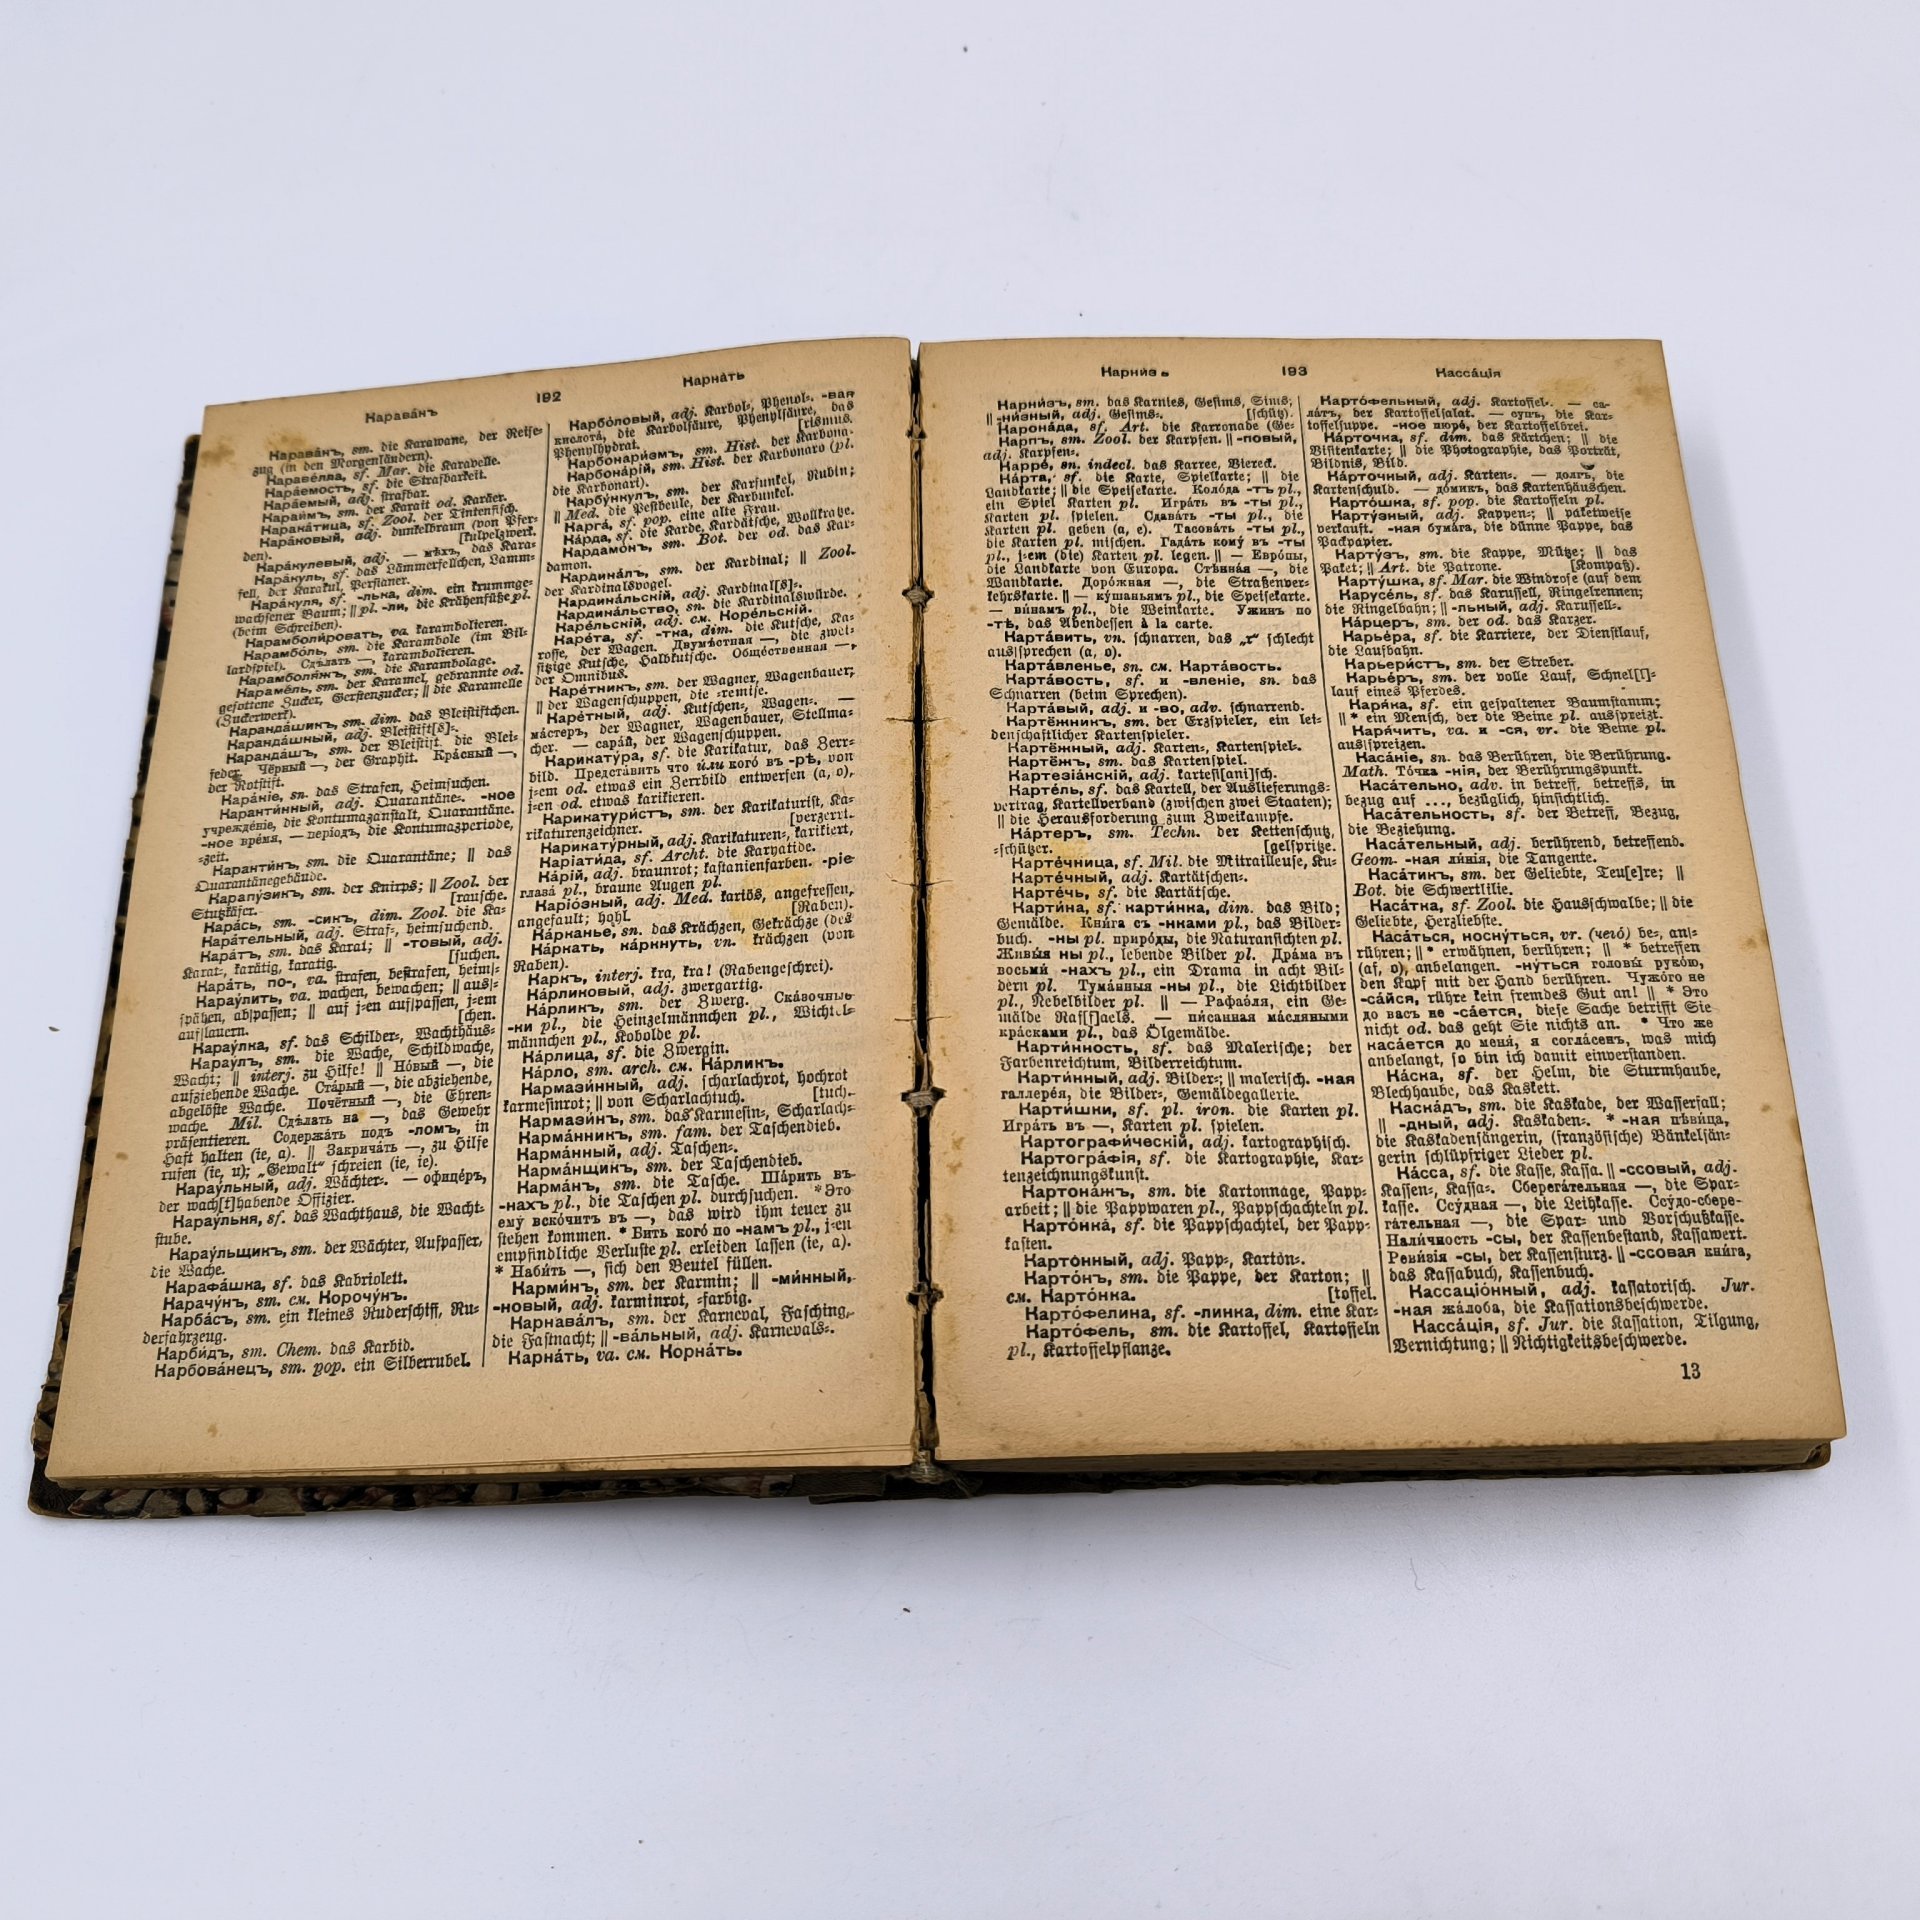 Карава́нъ 192 Карна́ть
Карава́нъ, sm. die Karawane, der Reise-
zug (in den Morgenländern).
Караве́лла, sf. Mar. die Karavelle.
Кара́емость, sf. die Strafbarkeit.
Кара́емый, adj. strafbar.
Караи́мъ, sm. der Karait od. Karäer.
Карака́тица, sf. Zool. der Tintenfisch.
Кара́ковый, adj. dunkelbraun (von Pfer-
den). [kulpelzwerk.
Кара́кулевый, adj. — мѣхъ, das Kara-
Кара́куль, sf. das Lämmerfellchen, Lamm-
fell, der Karakul, Persianer.
Кара́куля, sf. -лька, dim. ein krummge-
wachsener Baum; || pl. -ли, die Krähenfüße pl.
(beim Schreiben).
Карамболи́ровать, va. karambolieren.
Карамбо́ль, sm. die Karambole (im Bil-
lardspiel). Сдѣлать —, karambolieren.
Карамболя́жъ, sm. die Karambolage.
Караме́ль, sm. der Karamel, gebrannte od.
gesottene Zucker, Gerstenzucker; || die Karamelle
(Zuckerwerk).
Каранда́шикъ, sm. dim. das Bleistiftchen.
Каранда́шный, adj. Bleistift[s]-.
Каранда́шъ, sm. der Bleistift, die Blei-
feder. Чёрный —, der Graphit. Кра́сный —,
der Rotstift.
Кара́ніе, sn. das Strafen, Heimsuchen.
Каранти́нный, adj. Quarantäne-. -ное
учрежде́ніе, die Kontumazanstalt, Quarantäne.
-ное вре́мя, — періодъ, die Kontumazperiode,
-zeit.
Каранти́нъ, sm. die Quarantäne; || das
Quarantänegebäude.
Карапу́зикъ, sm. der Knirps; || Zool. der
Stutzkäfer. [rausche.
Кара́сь, sm. -сикъ, dim. Zool. die Ka-
Кара́тельный, adj. Straf-, heimsuchend.
Кара́тъ, sm. das Karat; || -товый, adj.
Karat-, karätig, karatig. [suchen.
Кара́ть, по-, va. strafen, bestrafen, heim|-
Карау́лить, va. wachen, bewachen; || aus|-
spähen, ab|passen; || auf j-en auf|passen, j-em
auf|lauern. [chen.
Карау́лка, sf. das Schilder-, Wachthäus-
Карау́лъ, sm. die Wache, Schildwache,
Wacht; || interj. zu Hilfe! || Но́вый —, die
aufziehende Wache. Ста́рый —, die abziehende,
abgelöste Wache. Почётный —, die Ehren-
wache. Mil. Сдѣ́лать на —, das Gewehr
präsentieren. Содержа́ть подъ -ломъ, in
Haft halten (ie, a). || Закрича́ть —, zu Hilfe
rufen (ie, u); „Gewalt“ schreien (ie, ie).
Карау́льный, adj. Wächter-. — офице́ръ,
der wach[t]habende Offizier.
Карау́льня, sf. das Wachthaus, die Wacht-
stube.
Карау́льщикъ, sm. der Wächter, Aufpasser,
die Wache.
Карафа́шка, sf. das Kabriolett.
Карачу́нъ, sm. см. Корочу́нъ.
Карба́съ, sm. ein kleines Ruderschiff, Ru-
derfahrzeug.
Карби́дъ, sm. Chem. das Karbid.
Карбова́нецъ, sm. pop. ein Silberrubel.
Карбо́ловый, adj. Karbol-, Phenol-. -вая
кислота́, die Karbolsäure, Phenylsäure, das
Phenylhydrat. [rismus.
Карбонари́змъ, sm. Hist. der Karbona-
Карбона́рій, sm. Hist. der Karbonaro (pl.
die Karbonari).
Карбу́нкулъ, sm. der Karfunkel, Rubin;
|| Med. die Pestbeule, der Karbunkel.
Карга́, sf. pop. eine alte Frau.
Ка́рда, sf. die Karde, Kardätsche, Wollkratze.
Кардамо́нъ, sm. Bot. der od. das Kar-
damon.
Кардина́лъ, sm. der Kardinal; || Zool.
der Kardinalsvogel.
Кардина́льскій, adj. Kardinal[s]-.
Кардина́льство, sn. die Kardinalswürde.
Каре́льскій, adj. см. Коре́льскій.
Каре́та, sf. -тка, dim. die Kutsche, Ka-
rosse, der Wagen. Двумѣ́стная —, die zwei-
sitzige Kutsche, Halbkutsche. Обще́ственная —,
der Omnibus.
Каре́тникъ, sm. der Wagner, Wagenbauer;
|| der Wagenschuppen, die -remise.
Каре́тный, adj. Kutschen-, Wagen-. —
ма́стеръ, der Wagner, Wagenbauer, Stellma-
cher. — сара́й, der Wagenschuppen.
Карикату́ра, sf. die Karikatur, das Zerr-
bild. Предста́вить что и́ли кого́ въ -рѣ, von
j-em od. etwas ein Zerrbild entwerfen (a, o),
j-en od. etwas karikieren.
Карикатури́стъ, sm. der Karikaturist, Ka-
rikaturenzeichner. [verzerrt.
Карикату́рный, adj. Karikaturen-, karikiert,
Каріати́да, sf. Archt. die Karyatide.
Ка́рій, adj. braunrot; kastanienfarben. -ріе
глаза́ pl., braune Augen pl.
Каріо́зный, adj. Med. kariös, angefressen,
angefault; hohl. [Raben).
Ка́рканье, sn. das Krächzen, Gekrächze (des
Ка́ркать, ка́ркнуть, vn. krächzen (von
Raben).
Каркъ, interj. kra, kra! (Rabengeschrei).
Ка́рликовый, adj. zwergartig.
Ка́рликъ, sm. der Zwerg. Ска́зочные
-ки pl., die Heinzelmännchen pl., Wichtel-
männchen pl., Kobolde pl.
Ка́рлица, sf. die Zwergin.
Ка́рло, sm. arch. см. Ка́рликъ.
Кармази́нный, adj. scharlachrot, hochrot
karmesinrot; || von Scharlachtuch. [tuch.
Кармази́нъ, sm. das Karmesin-, Scharlach-
Карма́нникъ, sm. fam. der Taschendieb.
Карма́нный, adj. Taschen-.
Карма́нщикъ, sm. der Taschendieb.
Карма́нъ, sm. die Tasche. Ша́рить въ
-нахъ pl., die Taschen pl. durchsuchen. * Это
ему́ вско́читъ въ —, das wird ihm teuer zu
stehen kommen. * Бить кого́ по -намъ pl., j-en
empfindliche Verluste pl. erleiden lassen (ie, a).
* Наби́ть —, sich den Beutel füllen.
Карми́нъ, sm. der Karmin; || -ми́нный,
-новый, adj. karminrot, -farbig.
Карнава́лъ, sm. der Karneval, Fasching,
die Fastnacht; || -ва́льный, adj. Karnevals-.
Карна́ть, va. см. Корна́ть.
Карни́зъ 193 Касса́ція
Карни́зъ, sm. das Karnies, Gesims, Sims;
|| -ни́зный, adj. Gesims-. [schütz).
Карона́да, sf. Art. die Karronade (Ge-
Карпъ, sm. Zool. der Karpfen. || -повый,
adj. Karpfen-.
Карре́, sn. indecl. das Karree, Viereck.
Ка́рта, sf. die Karte, Spielkarte; || die
Landkarte; || die Speisekarte. Коло́да -тъ pl.,
ein Spiel Karten pl. Игра́ть въ -ты pl.,
Karten pl. spielen. Сдава́ть -ты pl., die
Karten pl. geben (a, e). Тасова́ть -ты pl.,
die Karten pl. mischen. Гада́ть кому́ въ -ты
pl., j-em (die) Karten pl. legen. || — Евро́пы,
die Landkarte von Europa. Стѣнна́я —, die
Wandkarte. Доро́жная —, die Straßenver-
kehrskarte. || — ку́шаньямъ pl., die Speisekarte.
— ви́намъ pl., die Weinkarte. Ужинъ по
-тѣ, das Abendessen à la carte.
Карта́вить, vn. schnarren, das „r“ schlecht
aus|sprechen (a, o).
Карта́вленье, sn. см. Карта́вость.
Карта́вость, sf. и -вленіе, sn. das
Schnarren (beim Sprechen).
Карта́вый, adj. и -во, adv. schnarrend.
Картёжникъ, sm. der Erzspieler, ein lei-
denschaftlicher Kartenspieler.
Картёжный, adj. Karten-, Kartenspiel-.
Картёжъ, sm. das Kartenspiel.
Картезіа́нскій, adj. kartesi[ani]sch.
Карте́ль, sf. das Kartell, der Auslieferungs-
vertrag, Kartellverband (zwischen zwei Staaten);
|| die Herausforderung zum Zweikampfe.
Ка́ртеръ, sm. Techn. der Kettenschutz,
-schützer. [gelspritze.
Карте́чница, sf. Mil. die Mitrailleuse, Ku-
Карте́чный, adj. Kartätschen-.
Карте́чь, sf. die Kartätsche.
Карти́на, sf. карти́нка, dim. das Bild;
Gemälde. Кни́га съ -нками pl., das Bilder-
buch. -ны pl. приро́ды, die Naturansichten pl.
Живы́я ны pl., lebende Bilder pl. Дра́ма въ
восьми́ -нахъ pl., ein Drama in acht Bil-
dern pl. Тума́нныя -ны pl., die Lichtbilder
pl., Nebelbilder pl. || — Рафаэ́ля, ein Ge-
mälde Raf[f]aels. — пи́санная ма́сляными
кра́сками pl., das Ölgemälde.
Карти́нность, sf. das Malerische; der
Farbenreichtum, Bilderreichtum.
Карти́нный, adj. Bilder-; || malerisch. -ная
галлере́я, die Bilder-, Gemäldegallerie.
Карти́шки, sf. pl. iron. die Karten pl.
Игра́ть въ —, Karten pl. spielen.
Картографи́ческій, adj. kartographisch.
Картогра́фія, sf. die Kartographie, Kar-
tenzeichnungskunst.
Картона́жъ, sm. die Kartonnage, Papp-
arbeit; || die Pappwaren pl., Pappschachteln pl.
Карто́нка, sf. die Pappschachtel, der Papp-
kasten.
Карто́нный, adj. Papp-, Karton-.
Карто́нъ, sm. die Pappe, der Karton; ||
см. Карто́нка. [toffel.
Карто́фелина, sf. -линка, dim. eine Kar-
Карто́фель, sm. die Kartoffel, Kartoffeln
pl., Kartoffelpflanze.
Карто́фельный, adj. Kartoffel-. — са-
ла́тъ, der Kartoffelsalat. — супъ, die Kar-
toffelsuppe. -ное пюре́, der Kartoffelbrei.
Ка́рточка, sf. dim. das Kärtchen; || die
Visitenkarte; || die Photographie, das Porträt,
Bildnis, Bild.
Ка́рточный, adj. Karten-. — долгъ, die
Kartenschuld. — до́микъ, das Kartenhäuschen.
Карто́шка, sf. pop. die Kartoffeln pl.
Карту́зный, adj. Kappen-; || paketweise
verkauft. -ная бума́га, die dünne Pappe, das
Packpapier.
Карту́зъ, sm. die Kappe, Mütze; || das
Paket; || Art. die Patrone. [Kompaß).
Карту́шка, sf. Mar. die Windrose (auf dem
Карусе́ль, sf. das Karussell, Ringelrennen;
die Ringelbahn; || -льный, adj. Karussell-.
Ка́рцеръ, sm. der od. das Karzer.
Карье́ра, sf. die Karriere, der Dienstlauf,
die Laufbahn.
Карьери́стъ, sm. der Streber.
Карье́ръ, sm. der volle Lauf, Schnel[l]-
lauf eines Pferdes.
Каря́ка, sf. ein gespaltener Baumstamm;
|| * ein Mensch, der die Beine pl. ausspreizt.
Каря́чить, va. и -ся, vr. die Beine pl.
aus|spreizen.
Каса́ніе, sn. das Berühren, die Berührung.
Math. То́чка -нія, der Berührungspunkt.
Каса́тельно, adv. in betreff, betreffs, in
bezug auf ..., bezüglich, hinsichtlich.
Каса́тельность, sf. der Betreff, Bezug,
die Beziehung.
Каса́тельный, adj. berührend, betreffend.
Geom. -ная ли́нія, die Tangente.
Каса́тикъ, sm. der Geliebte, Teu[e]re; ||
Bot. die Schwertlilie.
Каса́тка, sf. Zool. die Hausschwalbe; || die
Geliebte, Herzliebste.
Каса́ться, косну́ться, vr. (чего́) be-, an|-
rühren; || * erwähnen, berühren; || * betreffen
(af, o), anbelangen. -ну́ться головы́ руко́ю,
den Kopf mit der Hand berühren. Чужо́го не
-са́йся, rühre kein fremdes Gut an! || * Это
до васъ не -са́ется, diese Sache betrifft Sie
nicht od. das geht Sie nichts an. * Что же
каса́ется до меня́, я согла́сенъ, was mich
anbelangt, so bin ich damit einverstanden.
Ка́ска, sf. der Helm, die Sturmhaube,
Blechhaube, das Kaskett.
Каска́дъ, sm. die Kaskade, der Wasserfall;
|| -дный, adj. Kaskaden-. * -ная пѣви́ца,
die Kaskadensängerin, (französische) Bänkelsän-
gerin schlüpfriger Lieder pl.
Ка́сса, sf. die Kasse, Kassa. || -ссовый, adj.
Kassen-, Kassa-. Сберега́тельная —, die Spar-
kasse. Ссу́дная —, die Leihkasse. Ссу́до-сбере-
га́тельная —, die Spar- und Vorschußkasse.
Нали́чность -сы, der Kassenbestand, Kassawert.
Реви́зія -сы, der Kassensturz. || -ссовая кни́га,
das Kassabuch, Kassenbuch.
Кассаціо́нный, adj. kassatorisch. Jur.
-ная жа́лоба, die Kassationsbeschwerde.
Касса́ція, sf. Jur. die Kassation, Tilgung,
Vernichtung; || Nichtigkeitsbeschwerde.
13